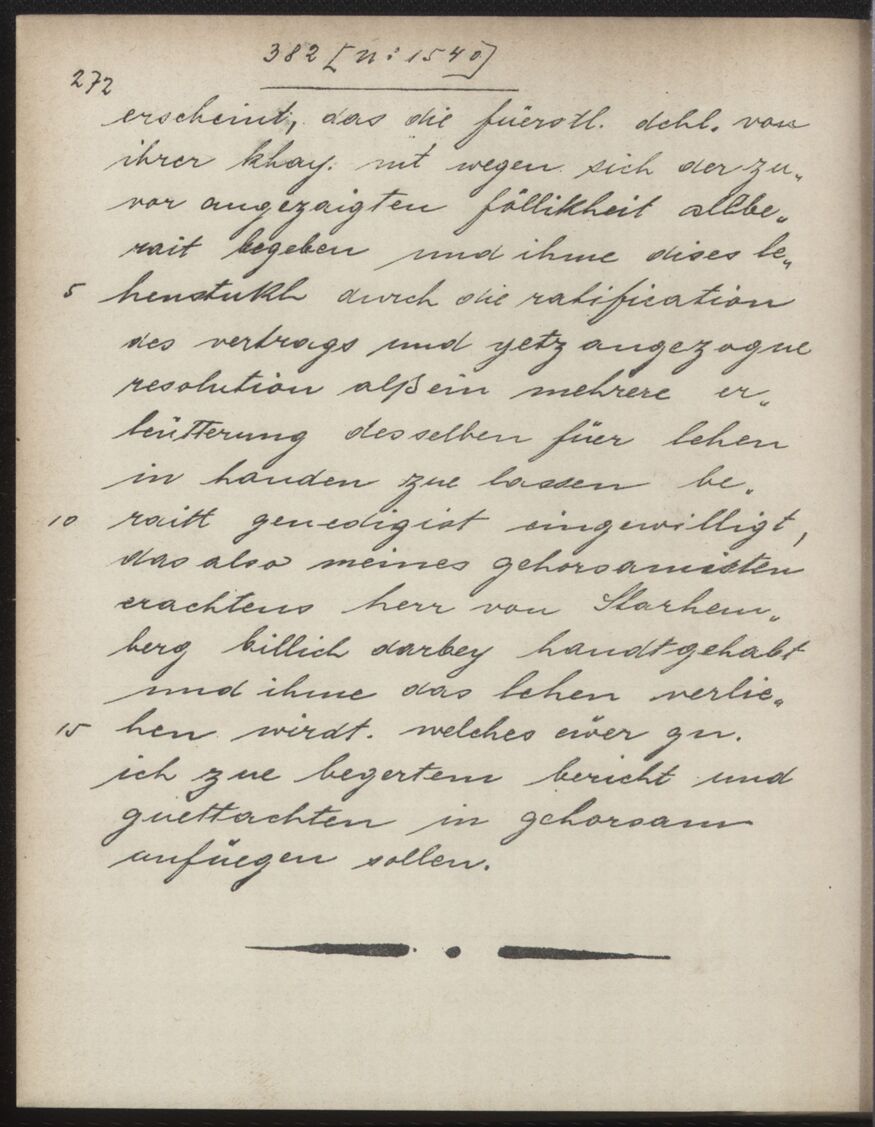 382 [N: 1540]
272
erscheint, das die füerstl. dchl. von
ihrer khay. mt wegen sich der zu„
vor angezaigten föllikheit allbe„
rait begeben und ihme dises le„
5 henstukh durch die ratification
des vertrags und yetz angezogne
resolution alß ein mehrere er„
leütterung desselben füer lehen
in handen zue lassen be„
10 raitt genedigist eingewilligt,
das also meines gehorsamisten
erachtens herr von Starhem„
berg billich darbey handtgehabt
und ihme das lehen verlie„
15 hen wirdt. welches eüer gn.
ich zue begertem bericht und
guettachten in gehorsam
anfüegen sollen.